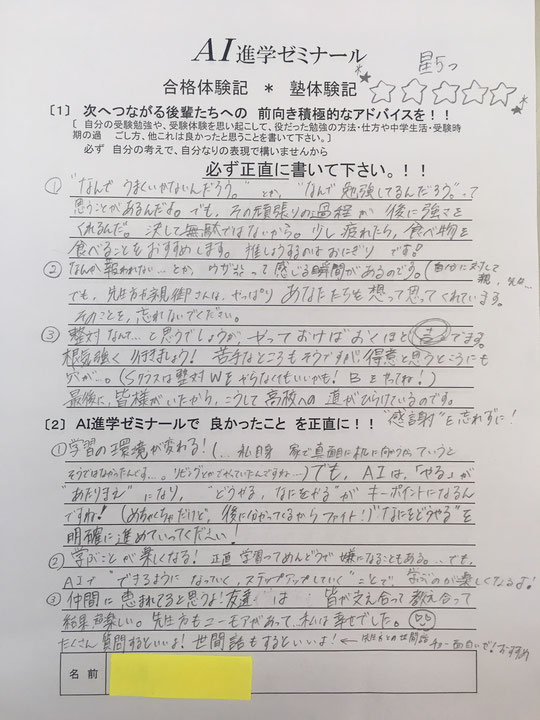 AI進学ゼミナール
星5つ
合格体験記 * 塾体験記
〔1〕 次へつながる後輩たちへの 前向き積極的なアドバイスを！！
〔 自分の受験勉強や、受験体験を思い起こして、役だった勉強の方法・仕方や中学生活・受験時
期の過 ごし方、他これは良かったと思うことを書いて下さい。〕
必ず 自分の考えで、自分なりの表現で構いませんから
必ず正直に書いて下さい。！！
① "なんで うまくいかないんだろう。" とか、"なんで 勉強してるんだろう。" って
思うことがあるんだよ。でも、その頑張りの過程が 後に強さを
くれるんだ。決して無駄ではないから。少し疲れたら、食べ物を
食べることをおすすめします。推しようするのはおにぎり です!
② なんか報われない…とか、ウザい って感じる瞬間があるのです。(自分に対して 親、
でも、先生方や親御さんは、やっぱり あなたたちを想って思ってくれています。
そのことを、忘れないでください。
③ 整対なんて…と思うでしょうが、やっておけばおくほど 吉 でます。
根気強く 行きましょう! 苦手なところもそうですが得意と思うところにも
穴が…。(Sクラスは整対Wをやらなくてもいいかも! Bをやってね!)
最後に、皆様がいたから、こうして高校への 道がひらけているのです。
"感謝" を忘れずに!
〔2〕 AI進学ゼミナールで 良かったこと を正直に！！
① 学習の環境が変わる! (…私自身 家で真面目に机に向かっていうと
そうではなかったんです…。リビングとかでやっていたんですね…) でも、AIは、「やる」が
"あたりまえ" になり、"どうやる、なにをやる" が キーポイントになるん
ですね! (めちゃくちゃだけど、後に分かってくるからファイト!) "なにをどうやる" を
明確に進めていってください!
② 学ぶことが 楽しくなる! 正直 学習ってめんどうで 嫌になることもある。…でも、
AIで "できるように なっていく、ステップアップしていく" ことで、学ぶのが楽しくなるよ!
③ 仲間に恵まれてると思うよ! 友達 は 皆が支え合って 教え合って
結果 楽しい。先生方もユーモアがあって…私は幸せでした。
たくさん 質問するといいよ! 世間話もするといいよ! ←先生方との世間話 面白いぜ! おすすめ
名 前